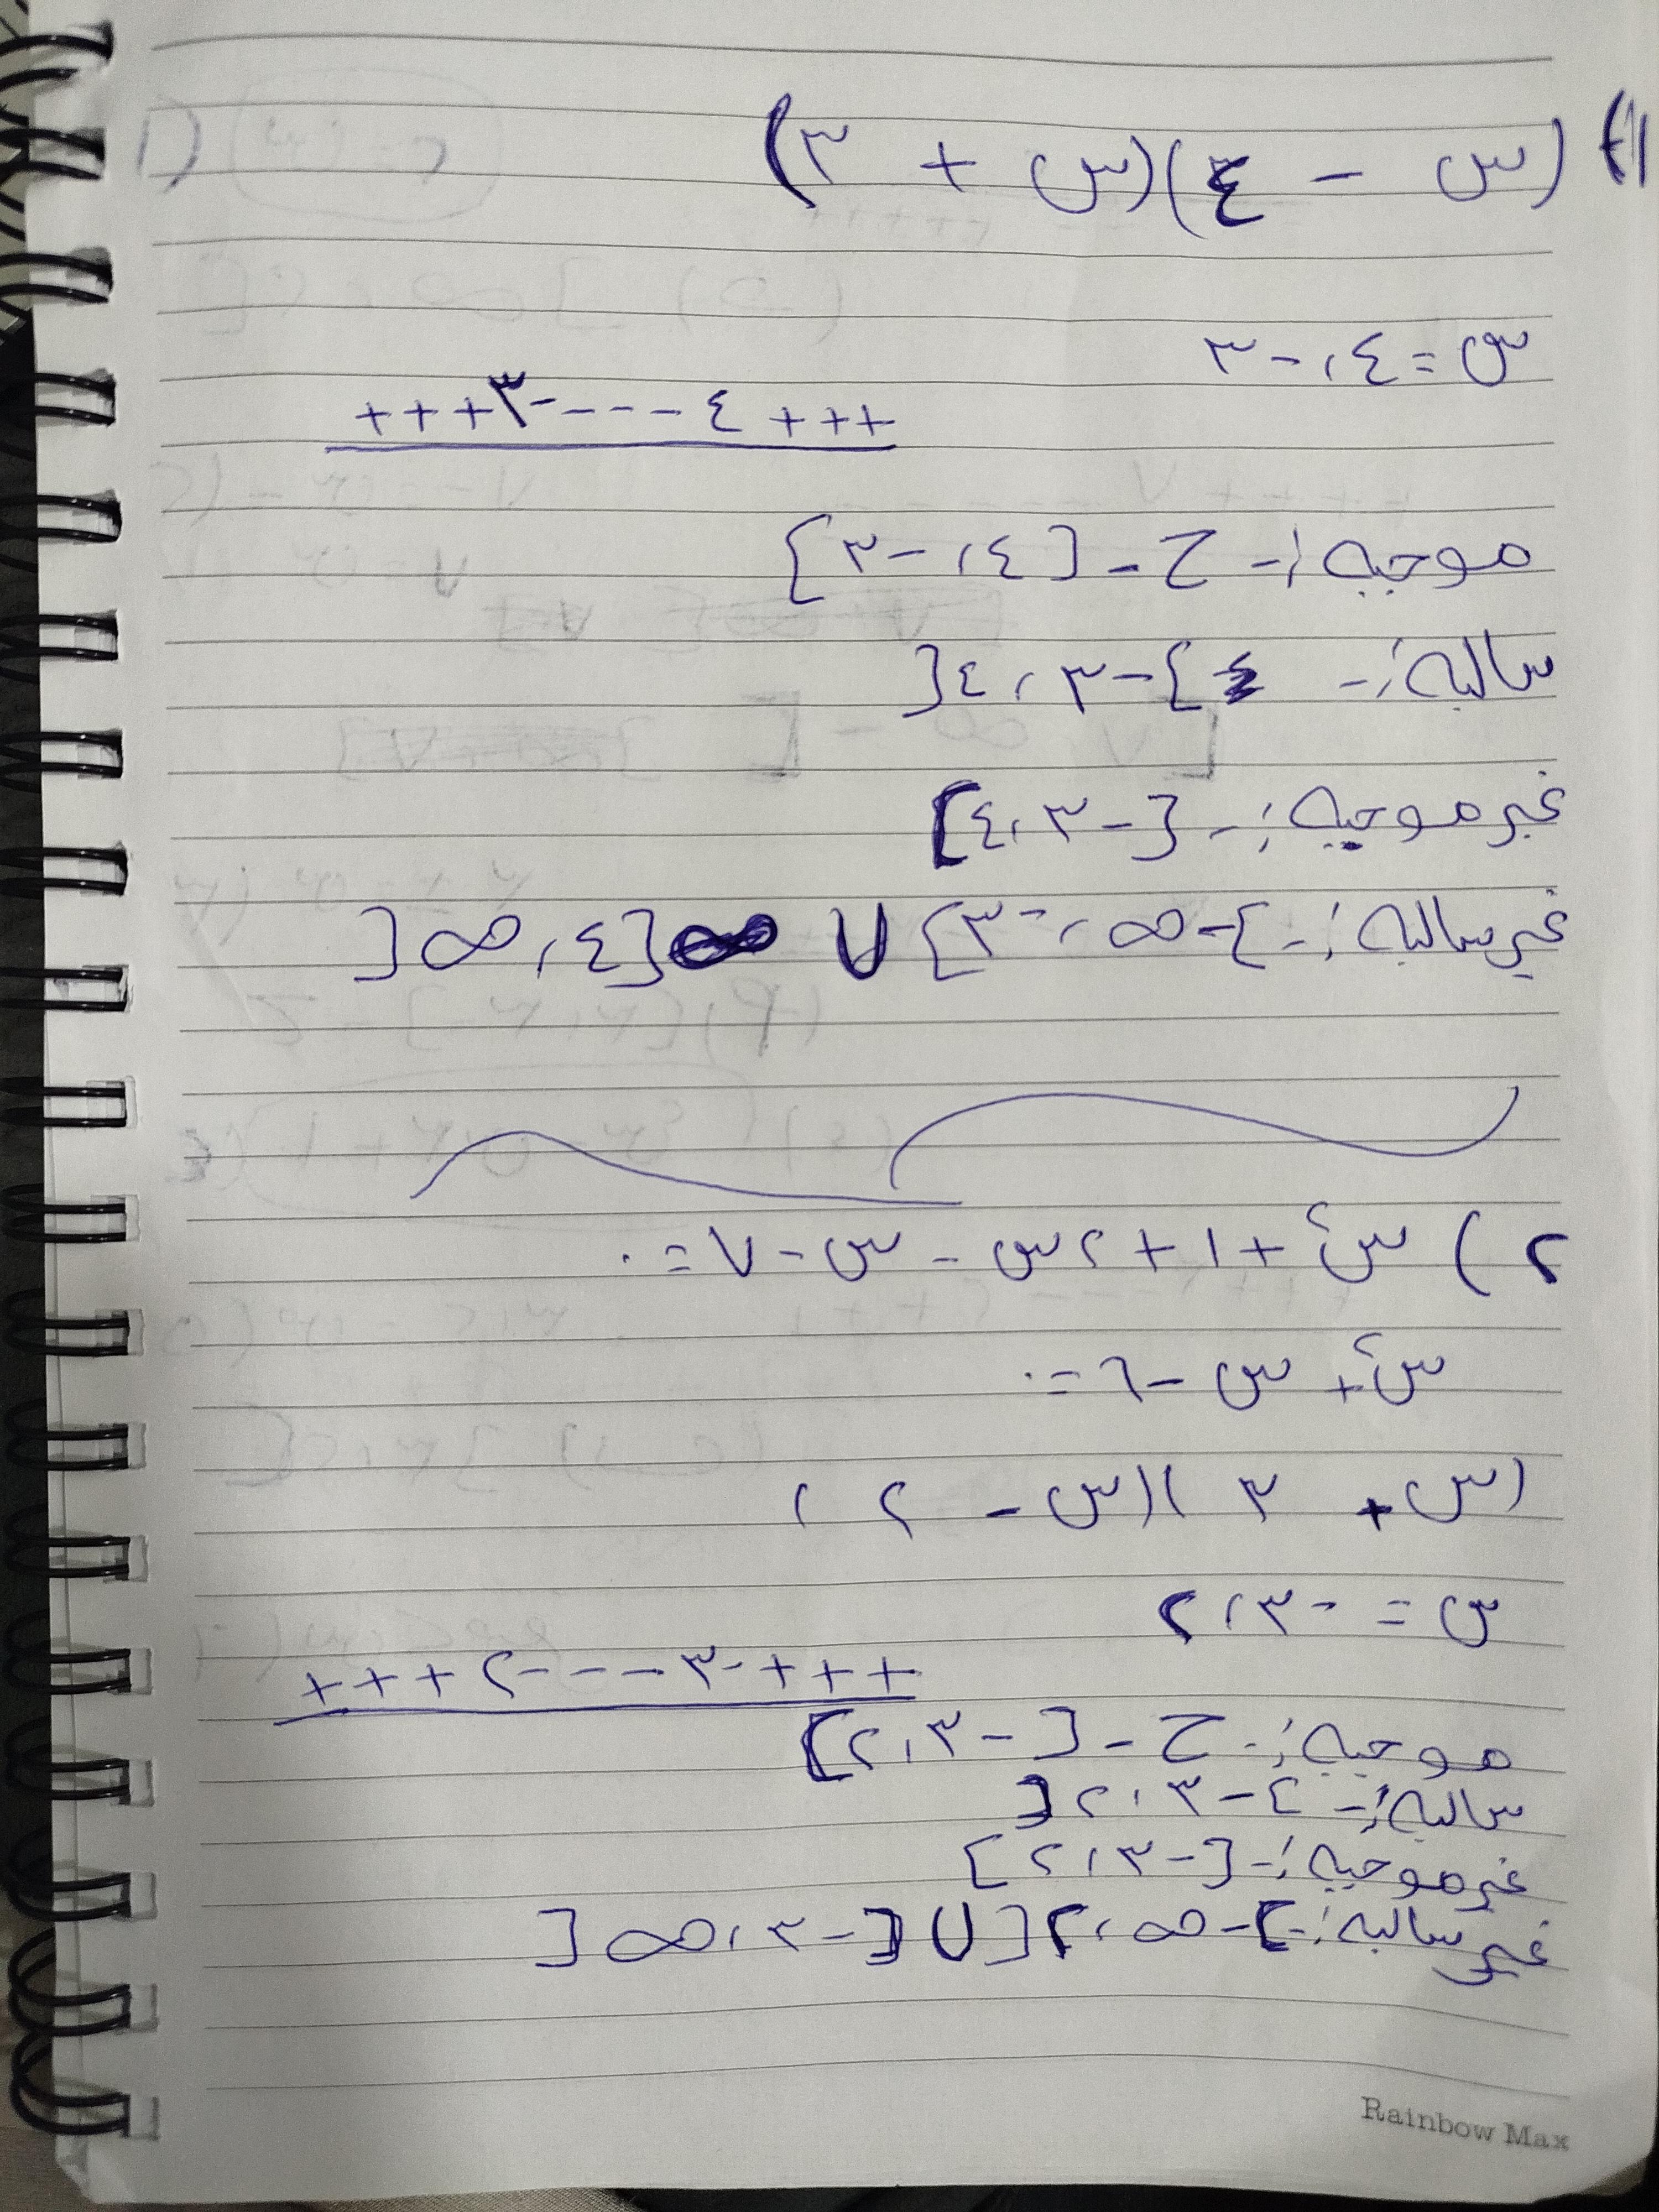 ١) (س - ٤)(س + ٣)
س = ٤ ، -٣
+++ ٣ - - - - ٤ +++
موجبة :- ح - [٤ ، -٣]
سالبة :- ]-٣ ، ٤[
غير موجبة :- [-٣ ، ٤]
غير سالبة :- ]-∞ ، -٣] U [٤ ، ∞[
٢) س٢ + ١ + ٢س - س - ٧ = ٠
س٢ + س - ٦ = ٠
(س + ٣)(س - ٢)
س = -٣ ، ٢
+++ ٢ - - - -٣ +++
موجبة :- ح - [-٣ ، ٢]
سالبة :- ]-٣ ، ٢[
غير موجبة :- [-٣ ، ٢]
غير سالبة :- ]-∞ ، ٢] U [-٣ ، ∞[
Rainbow Max